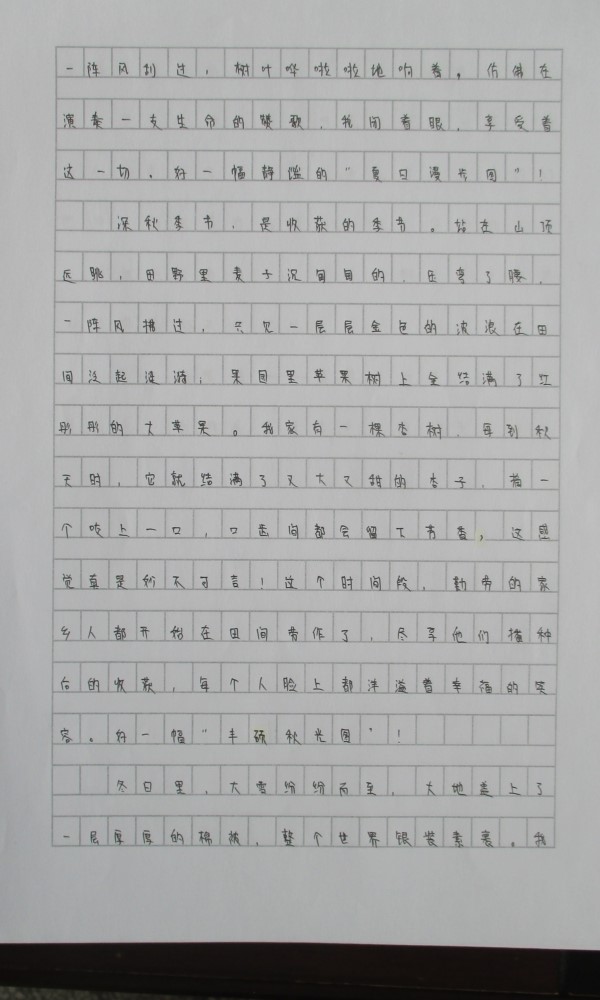 一阵风刮过，树叶哗啦啦地响着。仿佛在
演奏一支生命的赞歌，我闭着眼，享受着
这一切。好一幅静谧的“夏日漫步图”！
深秋季节，是收获的季节。站在山顶
远眺，田野里麦子沉甸甸的，压弯了腰，
一阵风拂过，只见一层层金色的波浪在田
间泛起涟漪；果园里苹果树上全结满了红
彤彤的大苹果。我家有一棵杏树，每到秋
天时，它就结满了又大又甜的杏子，摘一
个咬上一口，口齿间都会留下芳香，这感
觉真是妙不可言！这个时间段，勤劳的家
乡人都开始在田间劳作了，尽享他们播种
后的收获，每个人脸上都洋溢着幸福的笑
容。好一幅“丰硕秋光图”！
冬日里，大雪纷纷而至，大地盖上了
一层厚厚的棉被，整个世界银装素裹。我